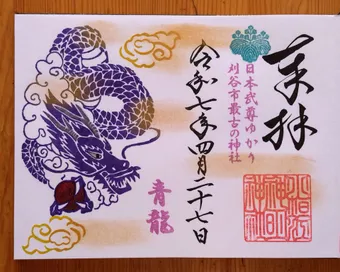 奉拝
日本武尊ゆかり
刈谷市最古の神社
令和七年四月二十七日
青龍